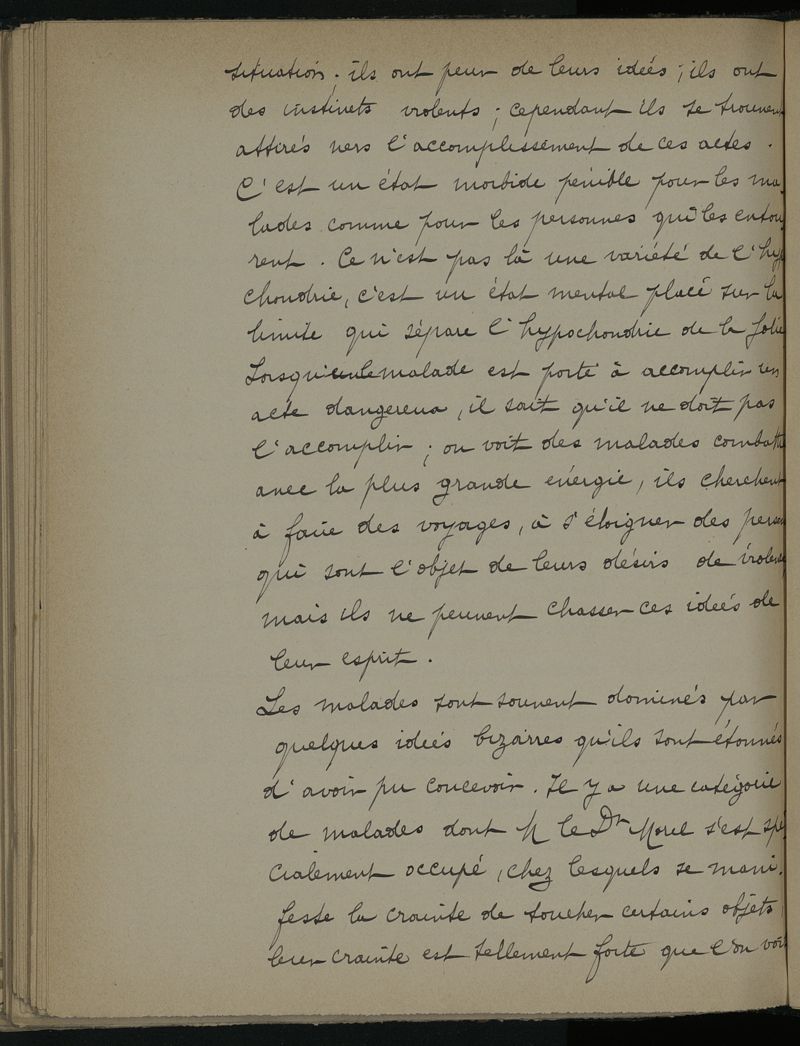 situation. ils ont peur de leurs idées ; ils ont
des instincts violents ; cependant ils se trouvent
attirés vers l'accomplissement de ces actes.
C'est un état morbide pénible pour les ma
lades comme pour les personnes qui les entou
rent. Ce n'est pas là une variété de l'hyp
chondrie, c'est un état mental placé sur la
limite qui sépare l'hypochondrie de la folie
Lorsqu'un malade est porté à accomplir un
acte dangereux, il sait qu'il ne doit pas
l'accomplir ; on voit des malades combatt
avec la plus grande énergie, ils cherchent
à faire des voyages, à s'éloigner des person
qui sont l'objet de leurs désirs de violence
mais ils ne peuvent chasser ces idées de
leur esprit.
Les malades sont souvent dominés par
quelques idées bizarres qu'ils sont étonnés
d'avoir pu concevoir. Il y a une catégorie
de malades dont M le Dr Morel s'est spé
cialement occupé, chez lesquels se mani.
feste la crainte de toucher certains objets,
leur crainte est tellement forte que l'on voit